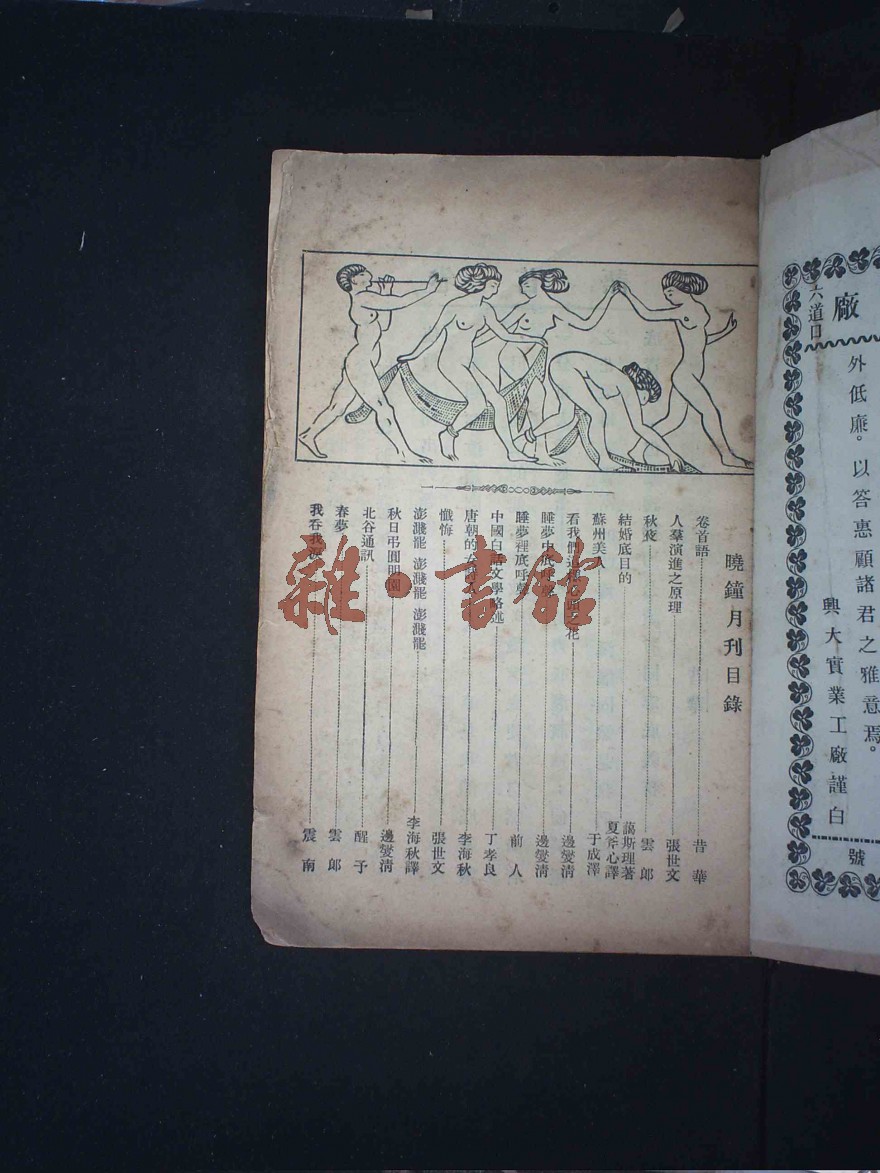 廠
六道口
外低廉。以答惠顧諸君之雅意焉。
興大實業工廠謹白
號
曉鐘月刊目錄
卷首語 昔華
人羣演進之原理 張世文
秋夜 雲郎
結婚底目的 藹斯理著 夏斧心譯
蘇州美人 于成澤
看我們這 花 邊燮清
睡夢中底呼 邊燮清
睡夢裡底呼 前人
中國白話文學略述 丁孝良
唐朝的 李海秋
懺悔 張世文
澎濺罷 澎濺罷 澎濺罷 李海秋譯
秋日弔圓明園 邊燮清
北谷通訊 醒予
春夢 雲郎
我吞我 震南
雜·書館